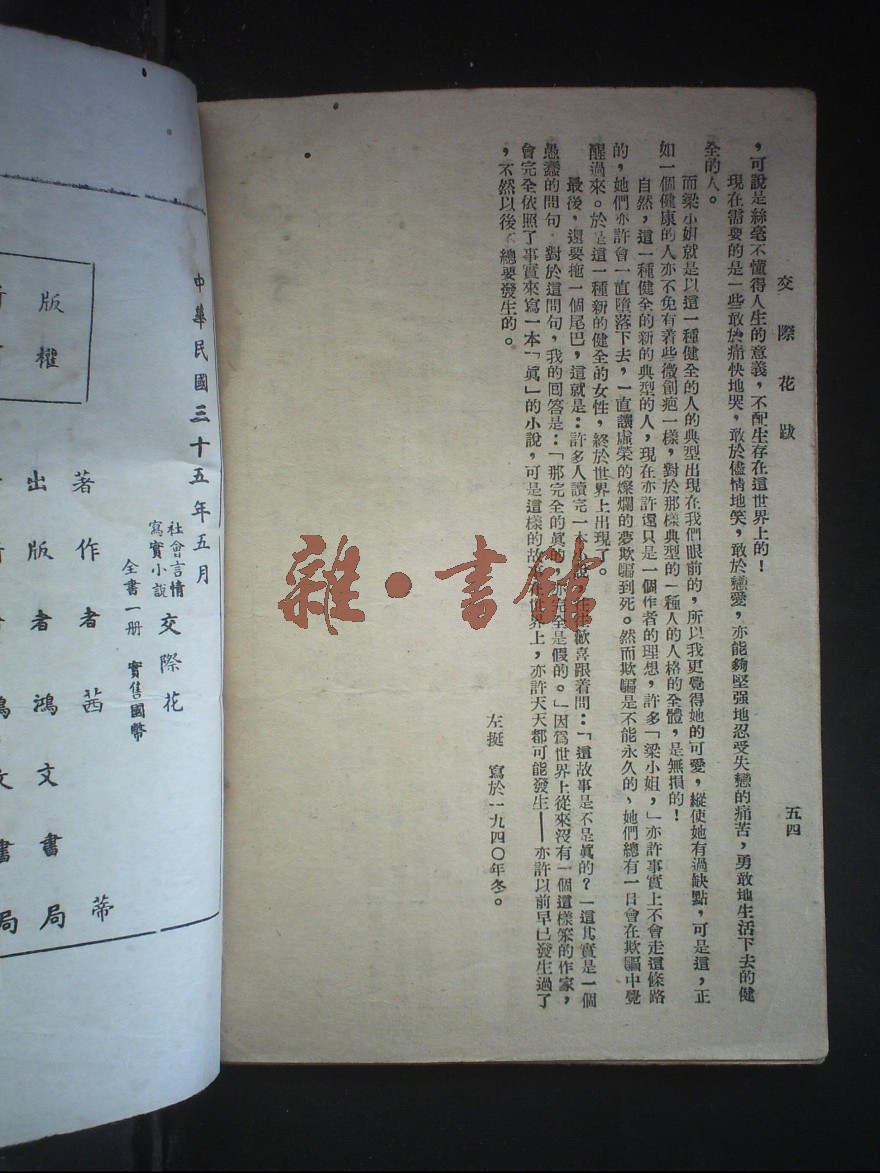 交際花跋
五四
，可說是絲毫不懂得人生的意義，不配生存在這世界上的！
現在需要的是一些敢於痛快地哭，敢於儘情地笑，敢於戀愛，亦能夠堅强地忍受失戀的痛苦，勇敢地生活下去的健
全的人。
而梁小姐就是以這一種健全的人的典型出現在我們眼前的，所以我更覺得她的可愛，縱使她有過缺點，可是這，正
如一個健康的人亦不免有着些微創疤一樣，對於那樣典型的一種人的人格的全體，是無損的！
自然，這一種健全的新的典型的人，現在亦許還只是一個作者的理想，許多「梁小姐，」亦許事實上不會走這條路
的，她們亦許會一直墮落下去，一直讓虛榮的燦爛的夢欺騙到死。然而欺騙是不能永久的、她們總有一日會在欺騙中覺
醒過來。於是這一種新的健全的女性，終於世界上出現了。
最後，還要拖一個尾巴，這就是：許多人讀完一本小說，往往歡喜跟着問：「這故事是不是眞的？」這其實是一個
愚蠢的問句，對於這問句，我的回答是：「那完全的眞的，亦完全是假的。」因爲世界上從來沒有一個這樣笨的作家，
會完全依照了事實來寫一本「眞」的小說，可是這樣的故事在世界上，亦許天天都可能發生——亦許以前早已發生過了
，不然以後 總要發生的。
左挺　寫於一九四〇年冬。
雜·書館
中華民國三十五年五月
社會言情
寫實小說
交際花
全書一册　實售國幣
著作者　茜蒂
出版者　鴻文書局
文書局
版權